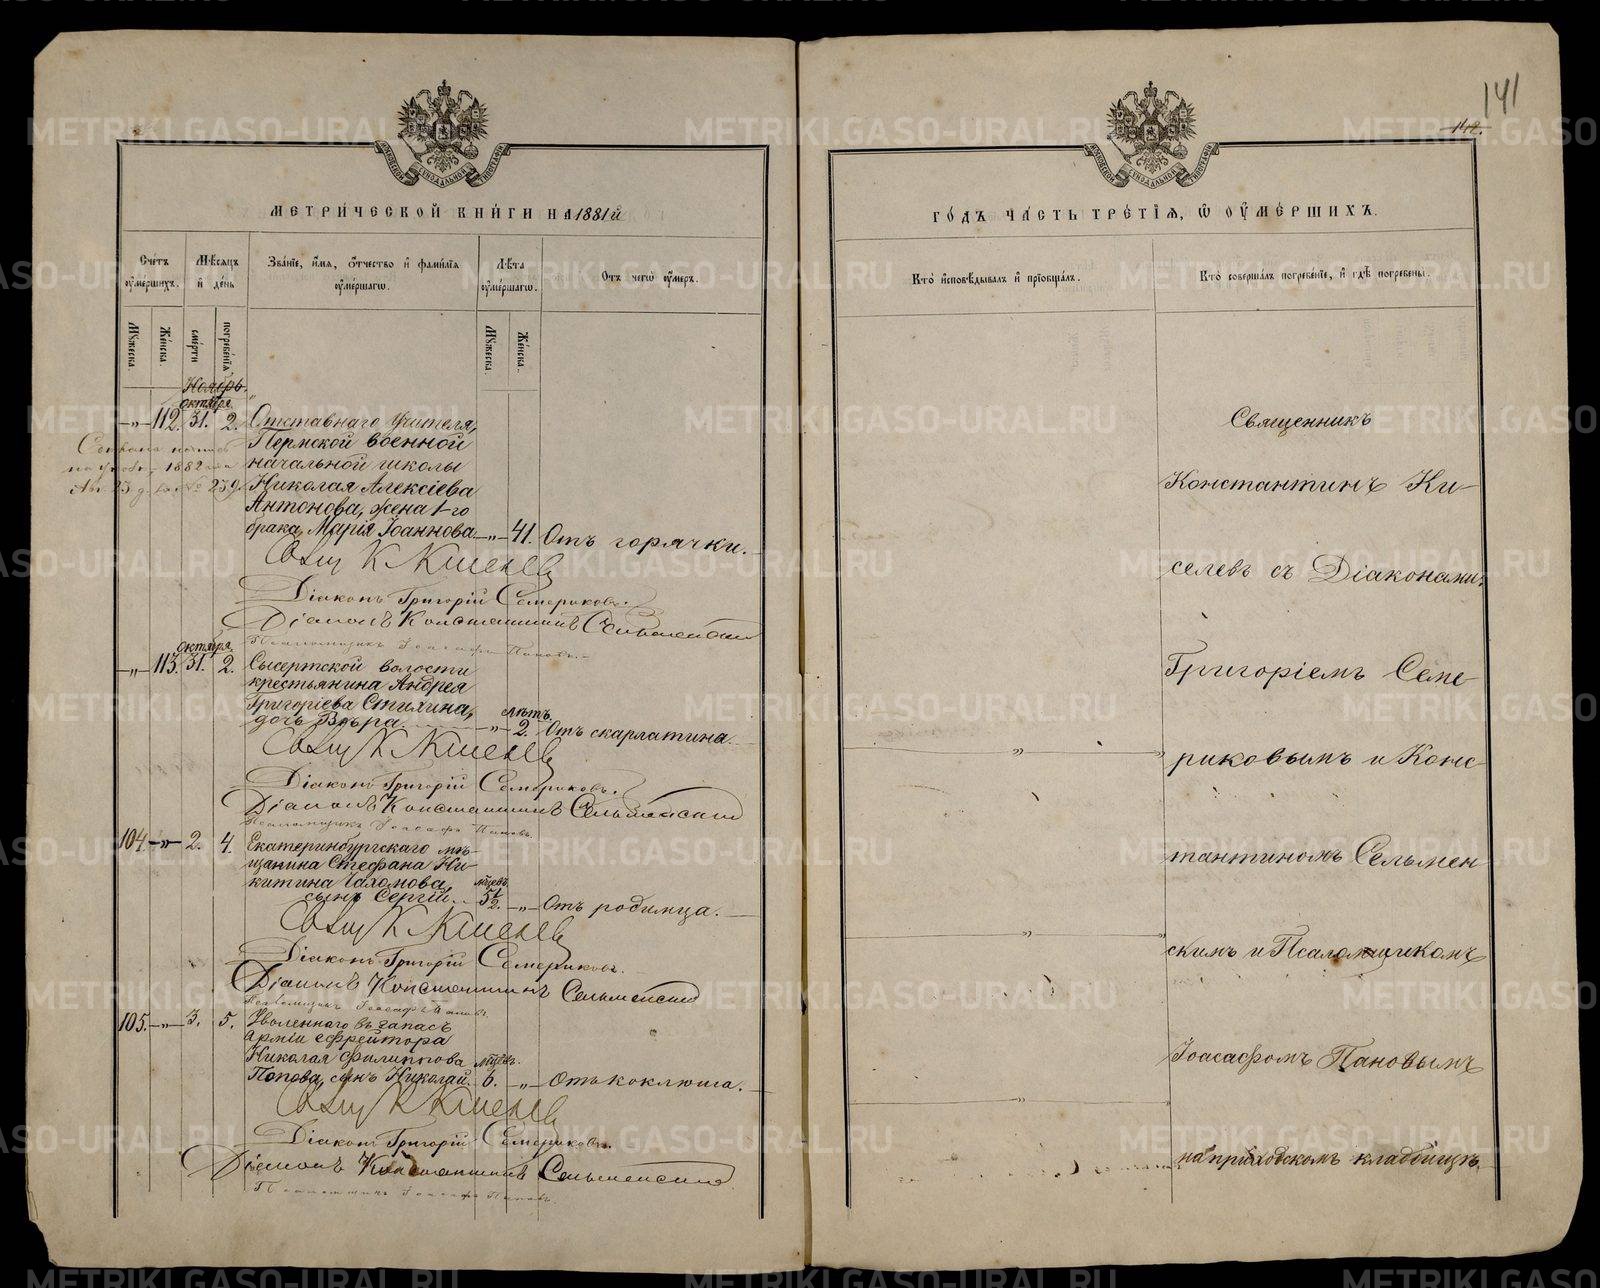 141
142.
МЕТРИЧЕСКОЙ КНИГИ НА 1881й
Счетъ умершихъ.
Мѣсяцъ и день
Званіе, имя, отчество и фамилія умершаго.
Лѣта умершаго.
Отъ чего умеръ.
Мужеска.
Женска.
смерти
погребенія
Мужеска.
Женска.
Ноябрь.
октября
-„- 112. 31. 2. Отставнаго Учителя,
Пермской военной
начальной школы
Николая Алексіева
Антонова, жена 1-го
брака, Марія Іоаннова -„- 41. Отъ горячки.
1882
№ 239
Свящ К Киселев
Діаконъ Григорій Семериковъ.
Діаконъ Константинъ Сельменскій
Псаломщикъ Іоасафъ Пановъ.
октября
-„- 113. 31. 2. Сысертской волости
крестьянина Андрея
Григоріева Стихина,
лѣтъ
дочь Вѣра. -„- 2. Отъ скарлатина.
Свящ К Киселев
Діаконъ Григорій Семериковъ.
Діаконъ Константинъ Сельменскій
Псаломщикъ Іоасафъ Пановъ.
104. -„- 2. 4. Екатеринбургскаго мѣ-
щанина Стефана Ни-
китина Чахомова, мѣсяцевъ
сынъ Сергій. 5½. -„- Отъ родимца.
Свящ К Киселев
Діаконъ Григорій Семериковъ.
Діаконъ Константинъ Сельменскій
Псаломщикъ Іоасафъ Пановъ.
105. -„- 3. 5. Уволеннаго въ запасъ
арміи ефрейтора
Николая Филиппова мѣсяцевъ.
Попова, сынъ Николай. 6. -„- Отъ коклюша.
Свящ К Киселев
Діаконъ Григорій Семериковъ.
Діаконъ Константинъ Сельменскій
Псаломщикъ Іоасафъ Пановъ.
ГОДЪ ЧАСТЬ ТРЕТІЯ, Ѡ УМЕРШИХЪ.
Кто исповѣдывалъ и пріобщалъ.
Кто совершалъ погребеніе, и гдѣ погребены.
Священникъ
Константинъ Ки-
селевъ съ Діаконами:
Григоріемъ Семе-
риковымъ и Конс-
тантиномъ Сельмен
скимъ и Псаломщикомъ
Іоасафомъ Пановымъ
на приходскомъ кладбищѣ.
METRIKI.GASO-URAL.RU